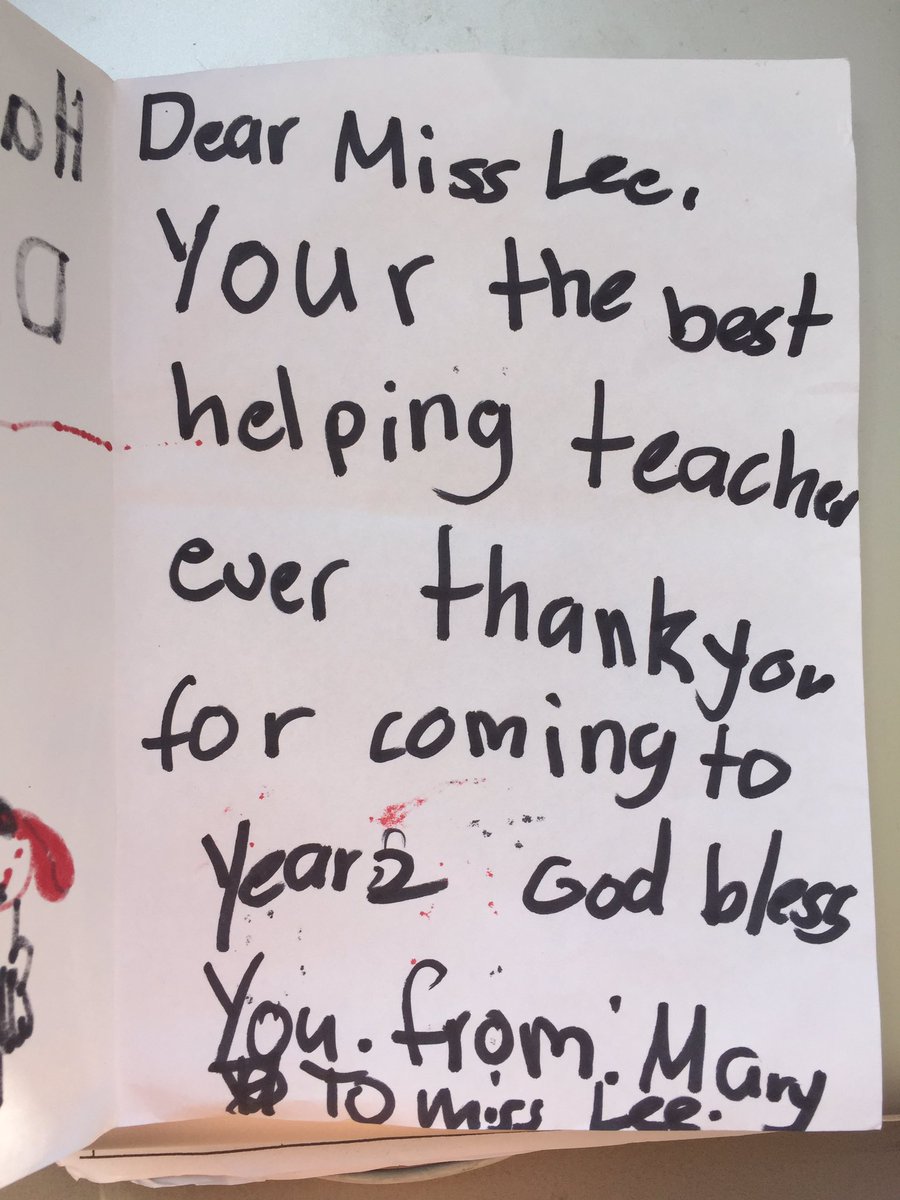 Dear Miss Lee.
Your the best
helping teacher
ever thankyou
for coming to
year2 God bless
You. from: Mary
To miss Lee.